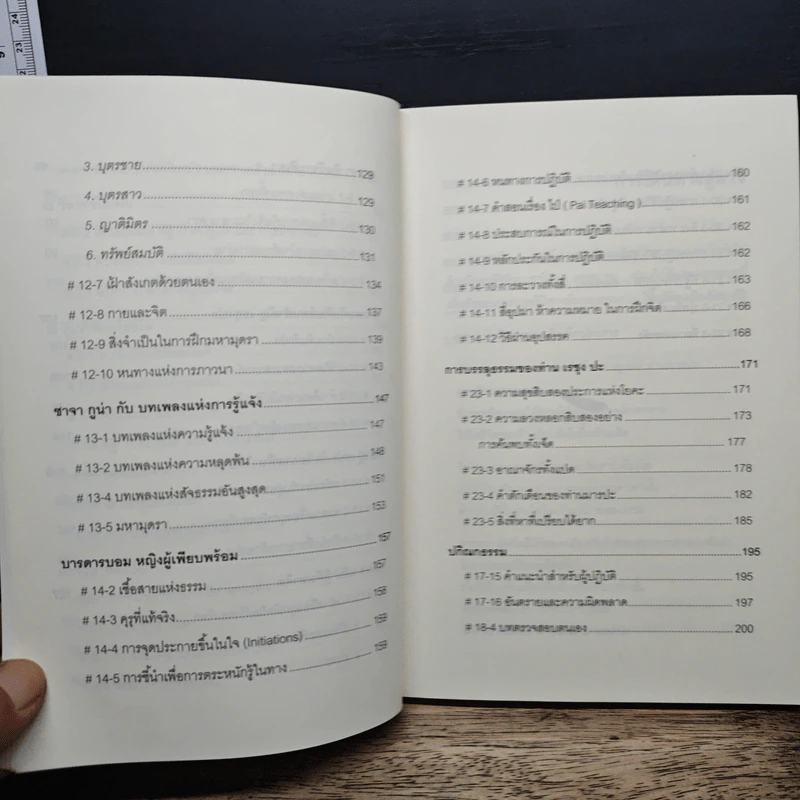 24
23
9
3. บุตรชาย 129
4. บุตรสาว 129
5. ญาติมิตร 130
6. ทรัพย์สมบัติ 131
# 12-7 เฝ้าสังเกตด้วยตนเอง 134
# 12-8 กายและจิต 137
# 12-9 สิ่งจำเป็นในการฝึกมหามุดรา 139
# 12-10 หนทางแห่งการภาวนา 143
ซาจา กูน่า กับ บทเพลงแห่งการรู้แจ้ง 147
# 13-1 บทเพลงแห่งความรู้แจ้ง 147
# 13-2 บทเพลงแห่งความหลุดพ้น 148
# 13-4 บทเพลงแห่งสัจธรรมอันสูงสุด 151
# 13-5 มหามุดรา 153
บารดารบอม หญิงผู้เพียบพร้อม 157
# 14-2 เชื้อสายแห่งธรรม 157
# 14-3 คุรุที่แท้จริง 158
# 14-4 การจุดประกายขึ้นในใจ (Initiations) 159
# 14-5 การชี้นำเพื่อการตระหนักรู้ในทาง 159
# 14-6 หนทางการปฏิบัติ 160
# 14-7 คำสอนเรื่อง โป๋ ( Pai Teaching ) 161
# 14-8 ประสบการณ์ในการปฏิบัติ 162
# 14-9 หลักประกันในการปฏิบัติ 162
# 14-10 การละวางทั้งสี่ 163
# 14-11 สี่อุปมา ห้าความหมาย ในการฝึกจิต 166
# 14-12 วิธีผ่านอุปสรรค 168
การบรรลุธรรมของท่าน เรชุง ปะ 171
# 23-1 ความสุขสิบสองประการแห่งโยคะ 171
# 23-2 ความลวงหลอกสิบสองอย่าง 173
การค้นพบทั้งเจ็ด 177
# 23-3 อาณาจักรทั้งแปด 178
# 23-4 คำตักเตือนของท่านมารปะ 182
# 23-5 สิ่งที่หาที่เปรียบได้ยาก 185
ปกิณกธรรม 195
# 17-15 คำแนะนำสำหรับผู้ปฏิบัติ 195
# 17-16 อันตรายและความผิดพลาด 197
# 18-4 บทตรวจสอบตนเอง 200